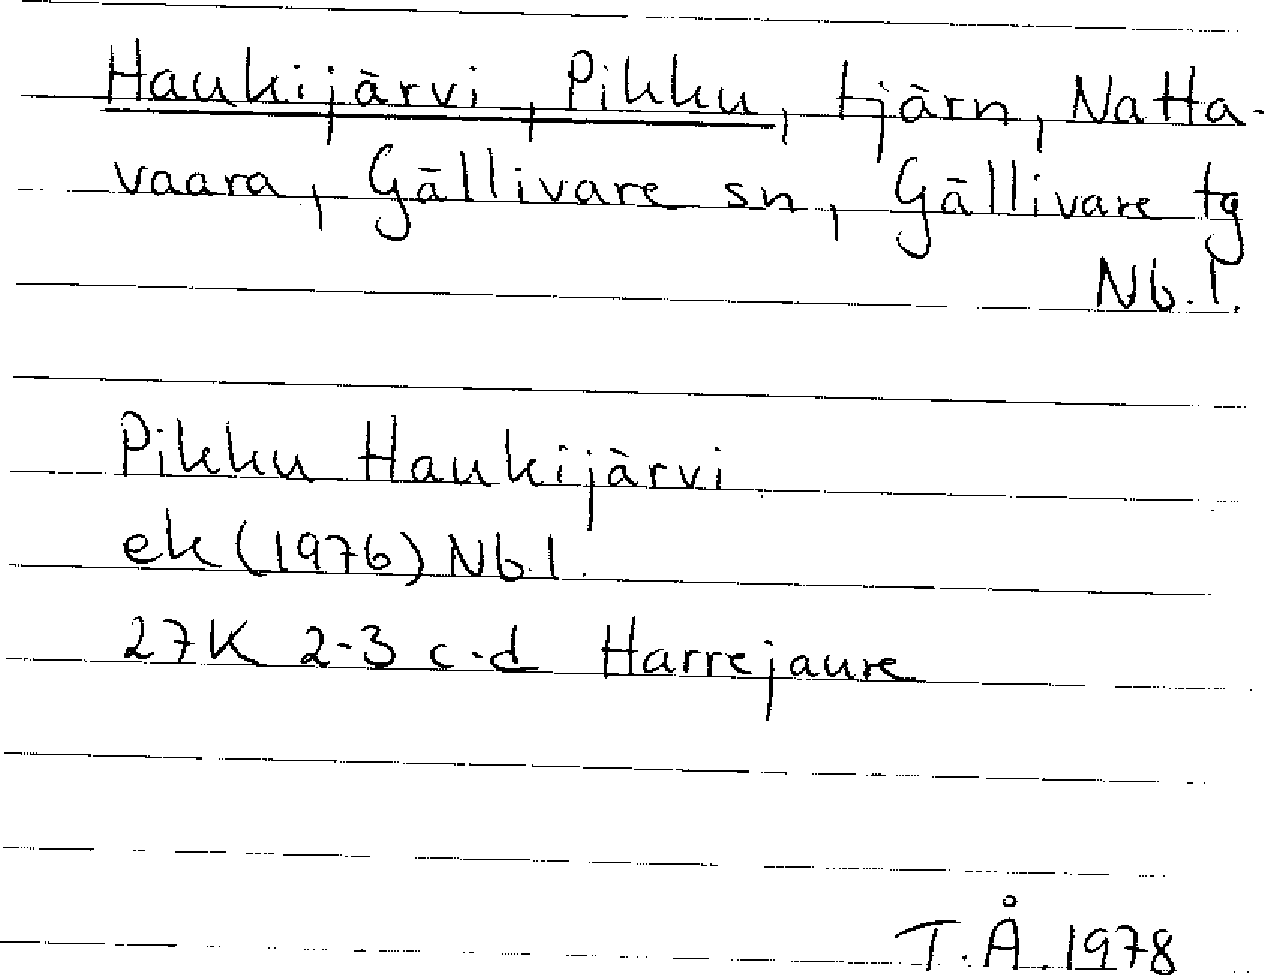 Haukijärvi, Pikku, tjärn, Natta-
vaara, Gällivare sn, Gällivare tg
Nb.l.
Pikku Haukijärvi
ek (1976) Nb.l.
27K 2-3 c-d Harrejaure
T.Å. 1978